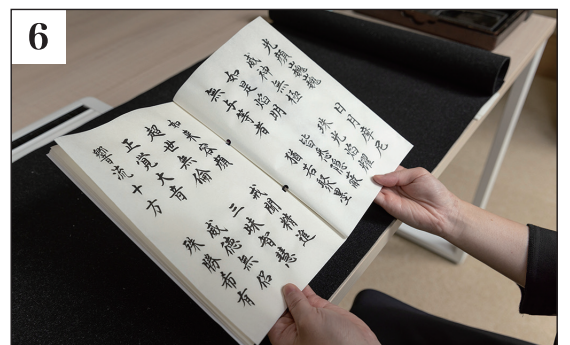 6
光顔巍巍
威神無極
如是焔明
無与等者
日月摩尼
珠光焔耀
皆悉隠蔽
猶若聚墨
如来容顔
超世無倫
正覚大音
響流十方
戒聞精進
三昧智慧
威徳無侶
殊勝希有